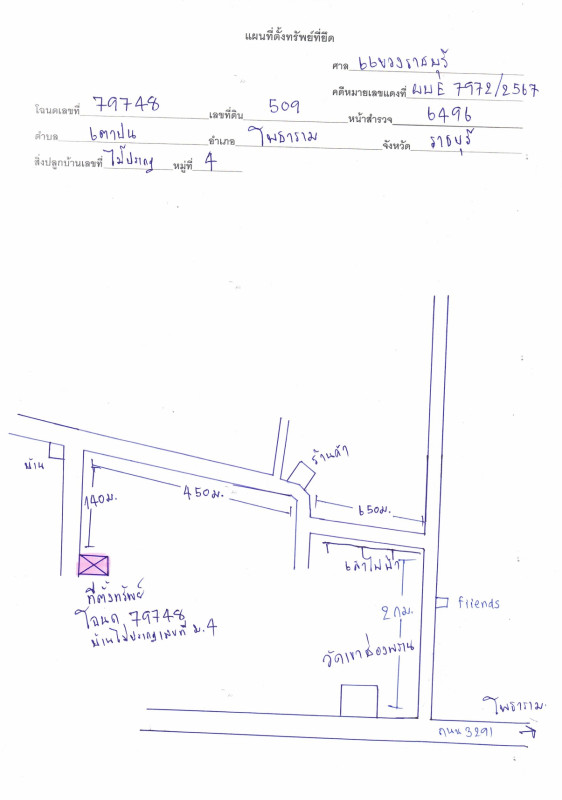 แผนที่ตั้งทรัพย์ที่ยึด
ศาล แขวงราชบุรี
คดีหมายเลขแดงที่ ผบE 7972/2567
โฉนดเลขที่ 79748 เลขที่ดิน 509 หน้าสำรวจ 6496
ตำบล เตาปูน อำเภอ โพธาราม จังหวัด ราชบุรี
สิ่งปลูกบ้านเลขที่ ไม่ปรากฏ หมู่ที่ 4
ร้านค้า
บ้าน
450 ม.
650 ม.
140 ม.
เสาไฟฟ้า
ที่ตั้งทรัพย์
โฉนด 79748
บ้านไม่ปรากฏเลขที่ ม.4
2 กม.
Friends
วัดเขาช่องพราน
โพธาราม
ถนน 3291